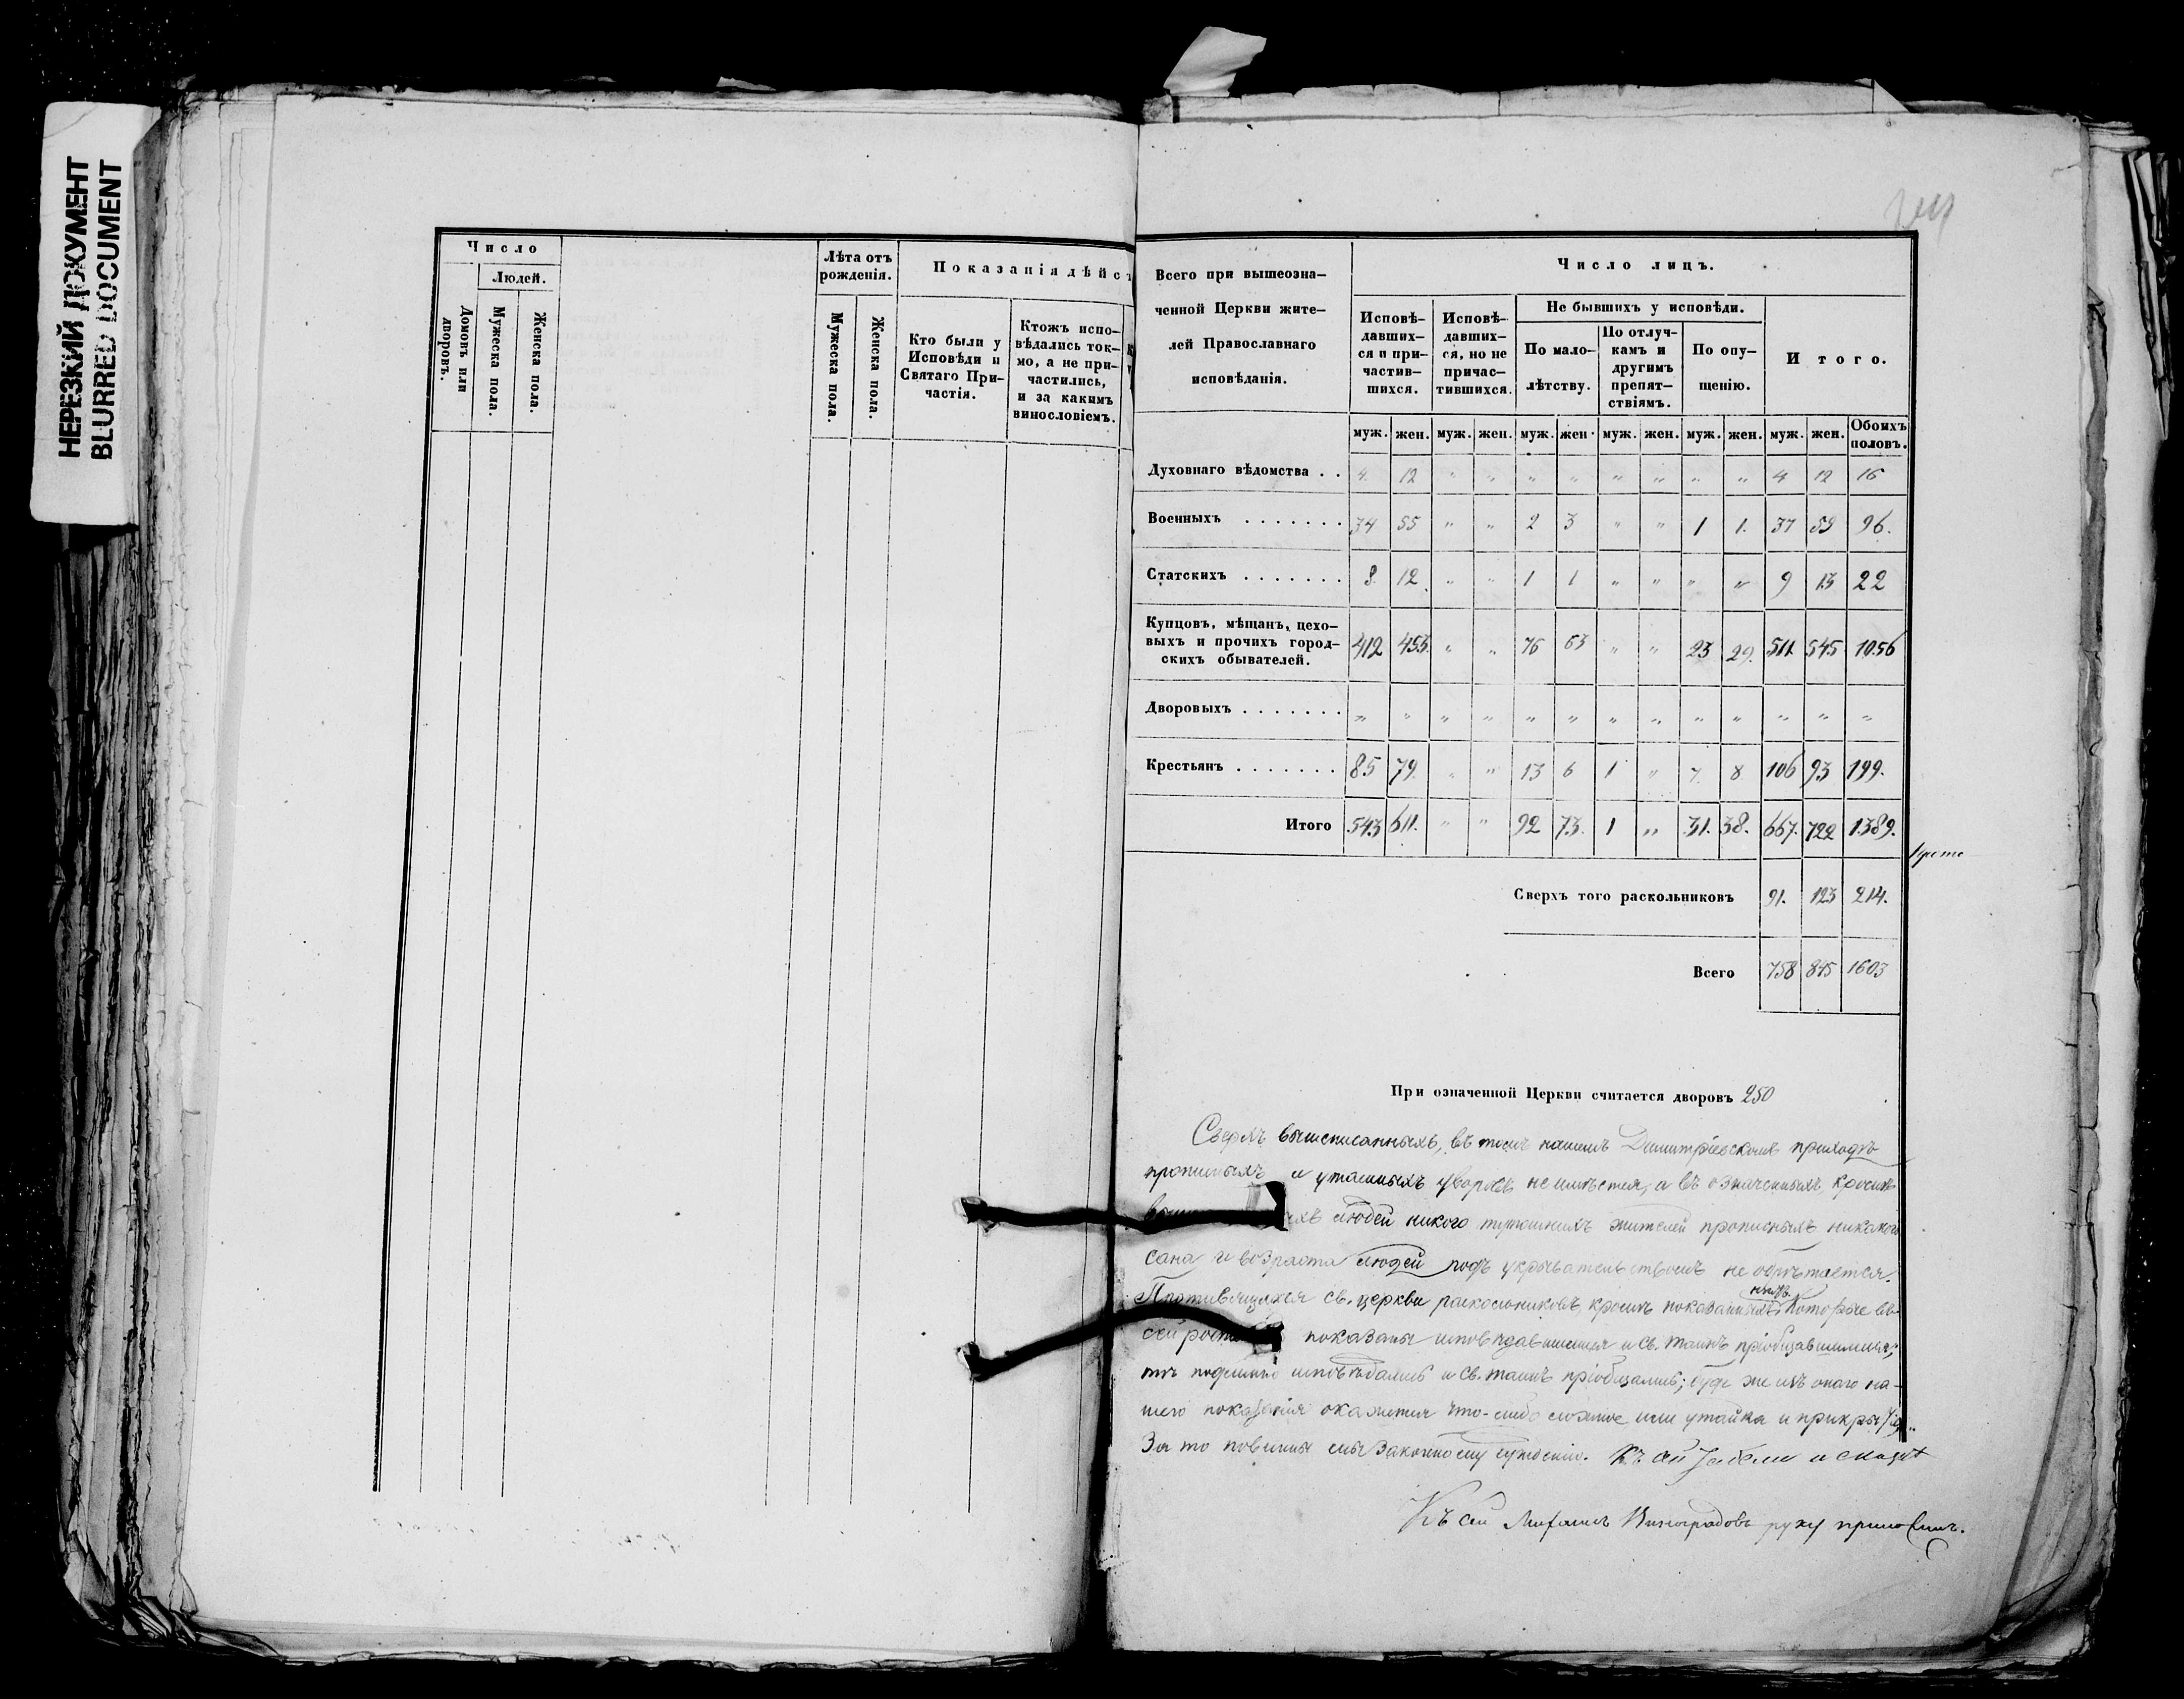 НЕРЕЗКИЙ ДОКУМЕНТ
BLURRED DOCUMENT
Число
Людей.
Домовъ или дворовъ.
Мужеска пола.
Женска пола.
Лѣта отъ рожденія.
Мужеска пола.
Женска пола.
Показанія дѣйс
Кто были у
Исповѣди и
Святаго При-
частія.
Ктожъ испо-
вѣдались ток-
мо, а не при-
частились,
и за какимъ
винословіемъ.
Всего при вышеозна-
ченной Церкви жите-
лей Православнаго
исповѣданія.
Число лицъ.
Исповѣ-
давших-
ся и при-
частив-
шихся.
Исповѣ-
давших-
ся, но не
причас-
тившихся.
Не бывшихъ у исповѣди.
По мало-
лѣтству.
По отлуч-
камъ и
другимъ
препят-
ствіямъ.
По опу-
щенію.
Итого.
муж. жен. муж. жен. муж. жен. муж. жен. муж. жен. муж. жен. Обоихъ половъ.
Духовнаго вѣдомства . . 4. 12 " " " " " " " " 4 12 16
Военныхъ . . . . . . . 34 55 " " 2 3 " " 1 1. 37 59 96.
Статскихъ . . . . . . . 8. 12. " " 1 1 " " " " 9 13 22
Купцовъ, мѣщанъ, цехо-
выхъ и прочихъ город-
скихъ обывателей. 412 453. " " 76 63 " " 23 29. 511. 545 1056
Дворовыхъ . . . . . . . " " " " " " " " " " " " "
Крестьянъ . . . . . . . 85 79. " " 13 6 1 " 7. 8. 106 93 199.
Итого 543 611. " " 92 73. 1 " 31. 38. 667. 722 1389.
Сверхъ того раскольниковъ 91. 123 214.
Всего 758 845 1603
При означенной Церкви считается дворовъ 250
Сверхъ вышеписанныхъ, въ томъ нашемъ Димитріевскомъ приходѣ
прописныхъ и утаенныхъ дворовъ не имѣется, а въ означенныхъ, кромѣ
людей никого тутошнихъ жителей прописныхъ никакого
сана и возраста людей подъ укрывательствомъ не обрѣтается.
Противящихся св. церкви раскольниковъ кромѣ показанныхъ нѣтъ. Которые въ
сей показаны исповѣдавшимися и св. таинъ пріобщавшимися,
тѣ подлинно исповѣдались и св. таинъ пріобщались; буде же изъ онаго на-
шего показанія окажется что-либо ложное или утайка и прикрытіе..
За то повинны мы законному сужденію. Къ сей
Къ сей Виноградовъ руку приложилъ.